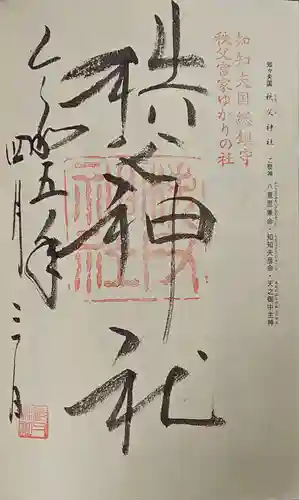 知々夫国 秩父神社 ご祭神 八意思兼命・知知夫彦命・天之御中主神
知知夫国総鎮守
秩父宮家ゆかりの社
秩父神社
令和五年
四月三十日